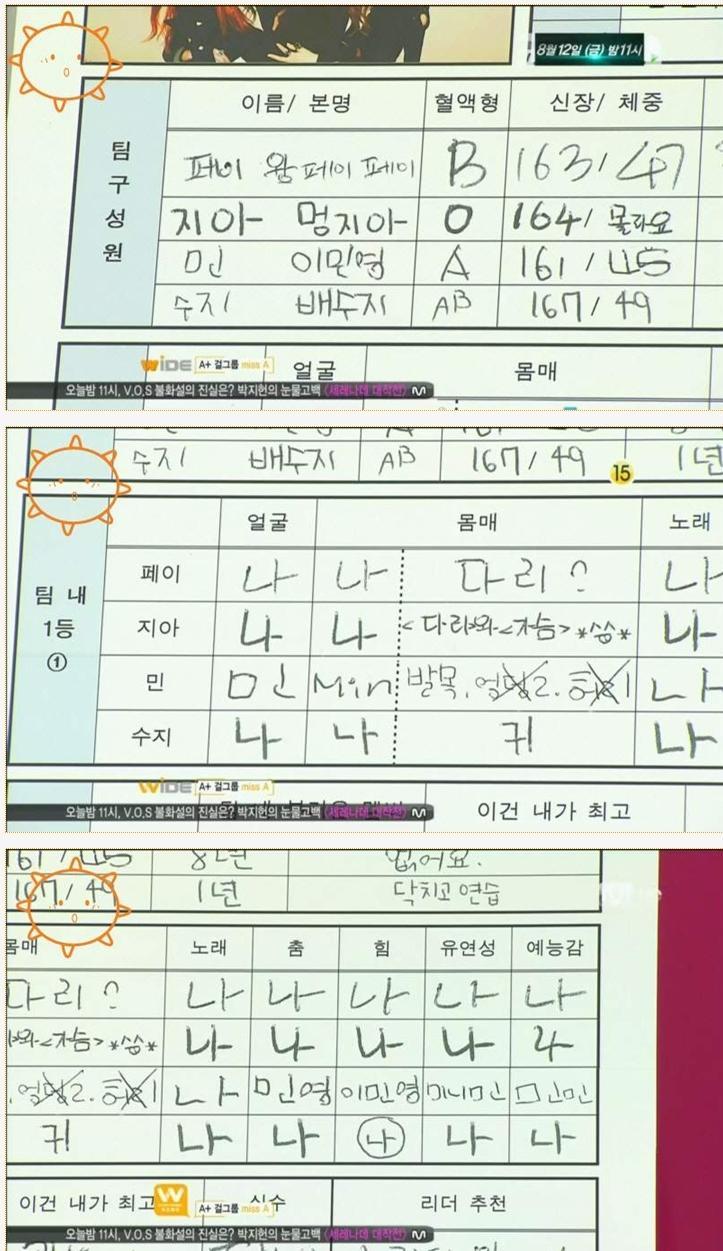 8월12일 (금) 밤11시
이름/ 본명 혈액형 신장/ 체중
팀 구 성 원
페이 왕페이페이 B 163/47
지아 멍지아 O 164/ 몰라요
민 이민영 A 161/45
수지 배수지 AB 167/49
얼굴 몸매
WiDE A+ 걸그룹 miss A
오늘밤 11시, V.O.S 불화설의 진실은? 박지헌의 눈물고백 <세레나데 대작전>
수지 배수지 AB 167/49 1년
15
얼굴 몸매 노래
팀 내 1등 ①
페이 나 나 다리? 나
지아 나 나 <다리>와<가슴>*씀* 나
민 민 Min 발목. 나
수지 나 나 귀 나
WiDE A+ 걸그룹 miss A
이건 내가 최고
오늘밤 11시, V.O.S 불화설의 진실은? 박지헌의 눈물고백 <세레나데 대작전>
161/45 8년 없어요.
167/49 1년 닥치고 연습
몸매 노래 춤 힘 유연성 예능감
다리? 나 나 나 나 나
와<가슴>*씀* 나 나 나 나 나
나 민영 이민영 미니민 민민
귀 나 나 나 나 나
이건 내가 최고 실수 리더 추천
W A+ 걸그룹 miss A
오늘밤 11시, V.O.S 불화설의 진실은? 박지헌의 눈물고백 <세레나데 대작전>